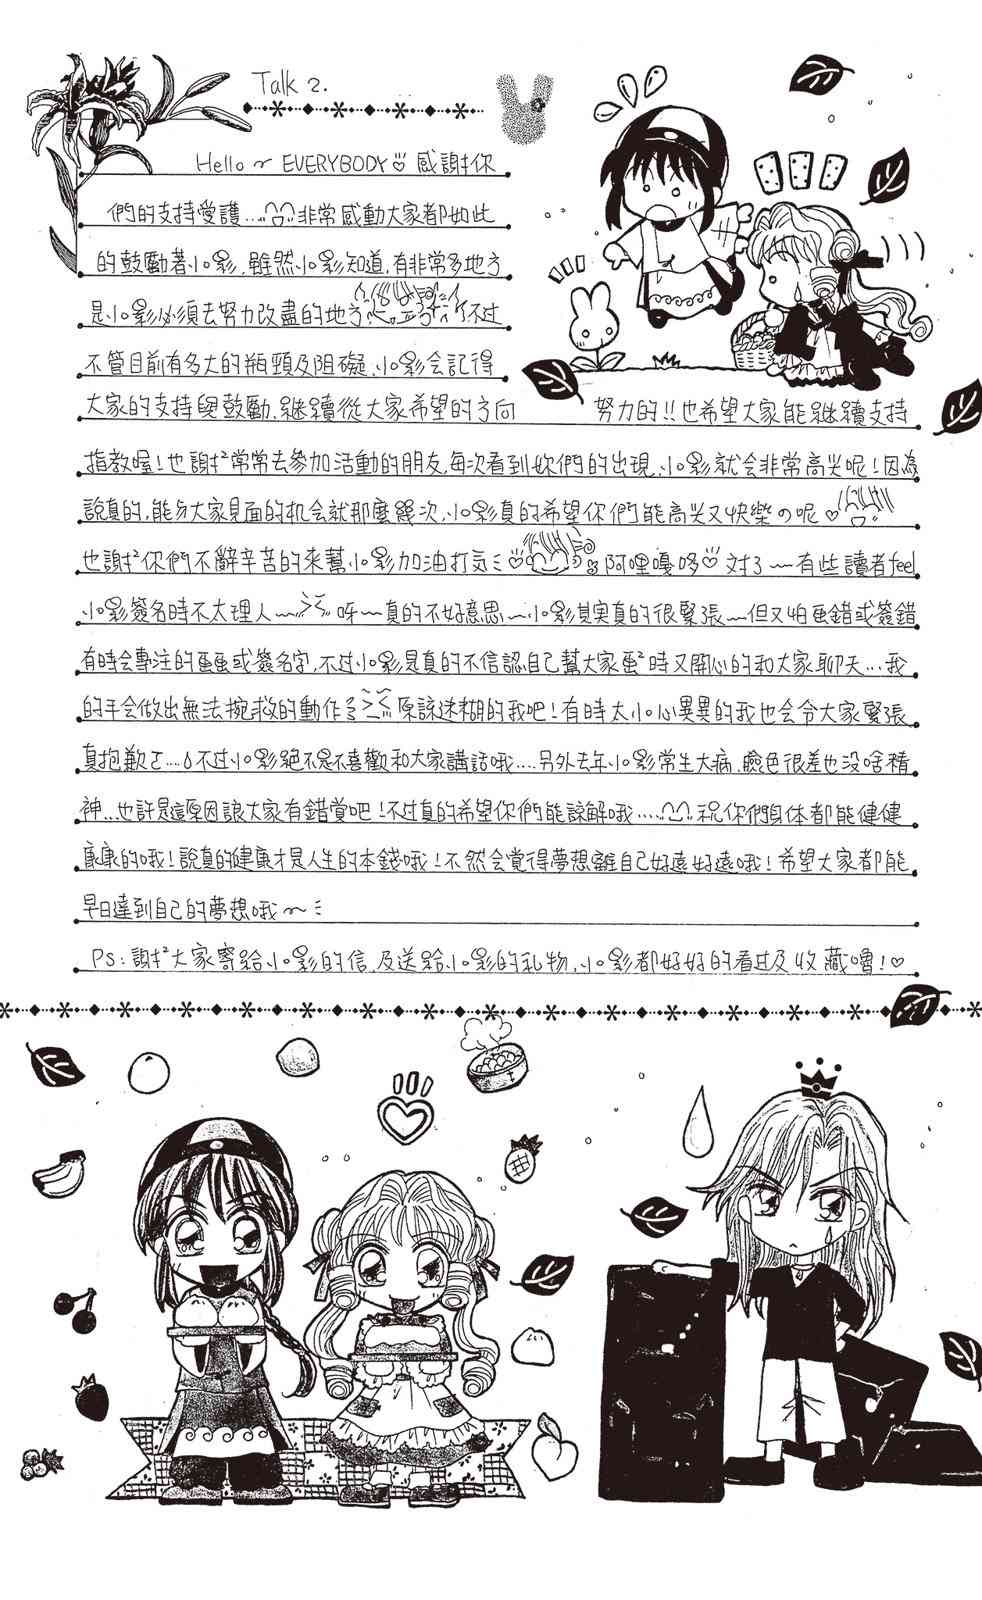 Talk 2.
Hello ～ EVERYBODY♡感謝你
們的支持愛護...非常感動大家都如此
的鼓勵著小影,雖然小影知道,有非常多地方
是小影必須去努力改盡的地方 不过
不管目前有多大的瓶頸及阻礙,小影会記得
大家的支持與鼓勵.継續從大家希望的方向 努力的!!也希望大家能継續支持
指教喔!也謝謝常常去參加活動的朋友,每次看到妳們的出現,小影就会非常高兴呢!因為
說真的,能与大家見面的机会就那麼幾次,小影真的希望你們能高兴又快樂の呢♡
也謝謝你們不辭辛苦的來幫小影加油打気♡ 阿哩嘎哆♡ 对了～有些讀者feel
小影簽名時不太理人～ 呀～真的不好意思～小影其実真的很緊張～但又怕画錯或簽錯
有時会專注的画画或簽名字,不过小影是真的不信認自己幫大家画画時又開心的和大家聊天...我
的手会做出無法挽救的動作 原諒迷糊的我吧!有時太小心異異的我也会令大家緊張
真抱歉ㄛ....不过小影絕不是不喜歡和大家講話哦....另外去年小影常生大病.臉色很差也没啥精
神...也許是這原因讓大家有錯覚吧!不过真的希望你們能諒解哦.....祝你們身体都能健健
康康的哦!說真的健康才是人生的本錢哦!不然会覚得夢想離自己好遠好遠哦!希望大家都能
早日達到自己的夢想哦～
PS:謝謝大家寄給小影的信,及送給小影的礼物,小影都好好的看过及收藏嚕!♡